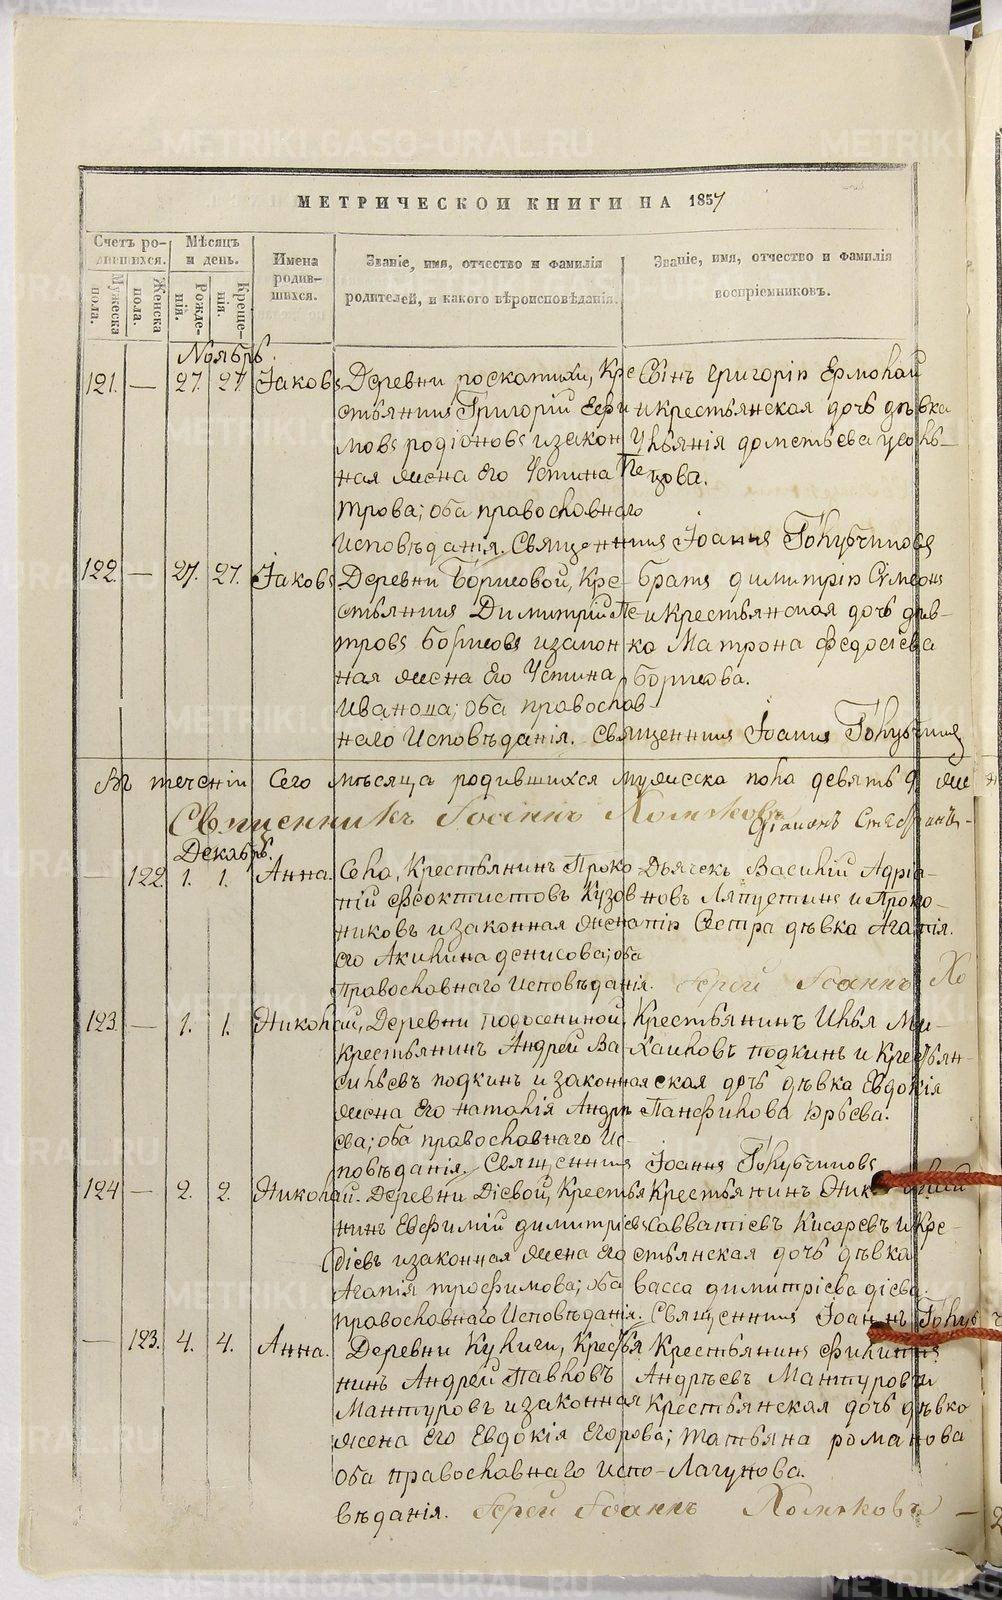 МЕТРИЧЕСКОЙ КНИГИ НА 1857
Счетъ родившихся.
Мѣсяцъ и день.
Имена родившихся.
Званіе, имя, отчество и фамилія родителей, и какого вѣроисповѣданія.
Званіе, имя, отчество и фамилія воспріемниковъ.
Мужеска пола.
Женска пола.
Рожденія.
Крещенія.
Ноябрь.
121. — 27. 27. Іаковъ
Деревни Роскатихи, Кре
стьянинъ Григорій Ефи
мовъ Родіоновъ и закон
ная жена его Устина Пе
трова; оба православнаго
Исповѣданія.
Сынъ Григорія Ермолай
и крестьянская дочь дѣвка
Ульянія Дометьева
Священникъ Іоаннъ Голубчиковъ
122. — 27. 27. Іаковъ
Деревни Борисовой, Кре-
стьянинъ Димитрій Пе
тровъ Борисовъ и закон
ная жена его Устина
Иванова; оба православ
наго Исповѣданія.
Братъ Димитрія Сѵмеонъ
и крестьянская дочь дѣв-
ка Матрона Федосіева
Борисова.
Священникъ Іоаннъ Голубчиковъ
Въ теченіи Сего мѣсяца родившихся мужеска пола девять 9. же
Священникъ Іоаннъ Хомяковъ
Декабрь.
— 122. 1. 1. Анна.
Села, Крестьянинъ Проко
пій Феоктистовъ Кузов
никовъ и законная жена
его Акилина Денисова; оба
Православнаго Исповѣданія.
Дьячекъ Василій Адріа-
новъ Ляпустинъ и Проко-
пія Сестра дѣвка Агапія.
Іерей Іоаннъ Хо
123. — 1. 1. Николай,
Деревни Подосениной,
Крестьянинъ Андрей Ва-
сильевъ Подкинъ и законная
жена Его Наталія Андре
ева; оба православнаго Ис-
повѣданія.
Крестьянинъ Илья Ми-
хаиловъ Подкинъ и Крестьян-
ская дочь дѣвка Евдокія
Панфилова Юрьева.
Священникъ Іоаннъ Голубчиковъ
124 — 2. 2. Николай.
Деревни Діевой, Крестья
нинъ Евфимій Димитріевъ
Діевъ и законная жена Его
Агапія Трофимова; оба
православнаго Исповѣданія.
Крестьянинъ
Савватіевъ Кисаревъ и Кре-
стьянская дочь дѣвка
Васса Димитріева Діева.
Священникъ Іоаннъ Голуб
— 123. 4. 4. Анна.
Деревни Кулиги, Крестья
нинъ Андрей Павловъ
Мантуровъ и законная
жена Его Евдокія Егорова;
оба православнаго Испо-
вѣданія.
Крестьянинъ Филиппъ
Андреевъ Мантуровъ и
крестьянская дочь дѣвка
Татьяна Романова
Лагунова.
Іерей Іоаннъ Хомяковъ
METRIKI.GASO-URAL.RU